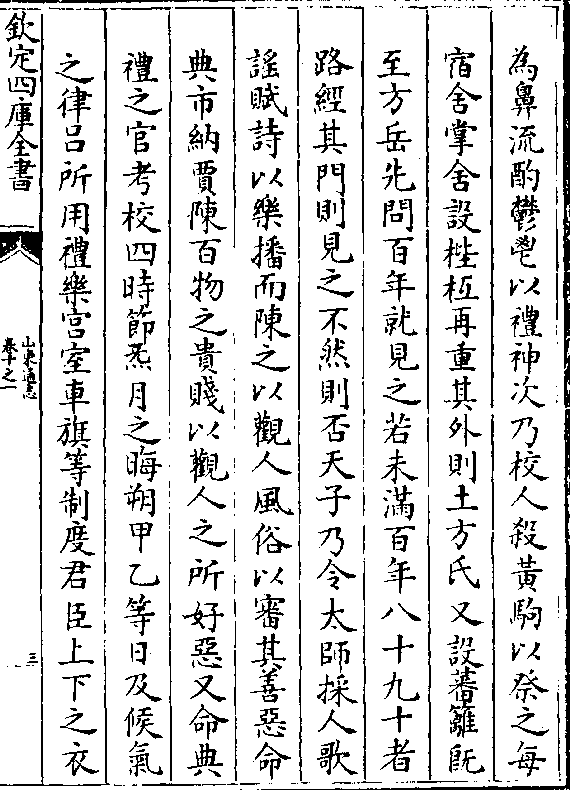 為鼻流酌鬱鬯以禮神次乃校人殺黃駒以祭之每
宿舍掌舍設梐枑再重其外則土方氏又設蕃籬既
至方岳先問百年就見之若未滿百年八十九十者
路經其門則見之不然則否天子乃令太師採人歌
謠賦詩以樂播而陳之以觀人風俗以審其善惡命
典市納賈陳百物之貴賤以觀人之所好惡又命典
禮之官考校四時節炁月之晦朔甲乙等日及候氣
之律呂所用禮樂宫室車旗等制度君臣上下之衣
欽定四庫全書
山東通志
卷十之一
三